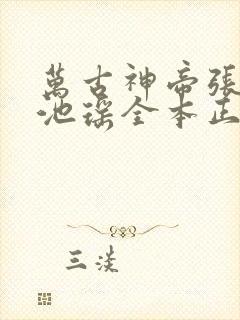 萬古神帝張
池瑤全本正
三淡